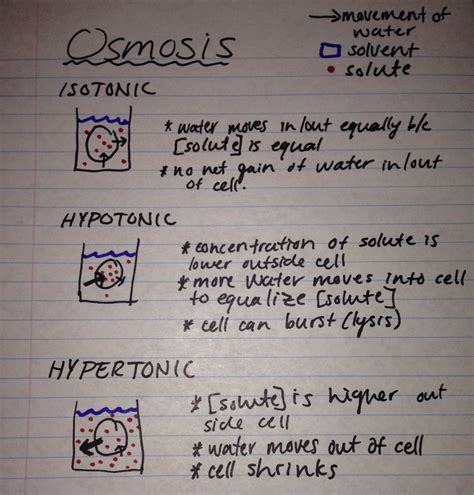 →movement of
water
Osmosis
solvent
• solute
ISOTONIC
* water moves in/out equally b/c
[solute] is equal
* no net gain of water in/out
of cell.
HYPOTONIC
* concentration of solute is
lower outside cell
* more water moves into cell
to equalize [solute]
* cell can burst (lysis)
HYPERTONIC
* [solute] is higher out
side cell
* water moves out of cell
* cell shrinks